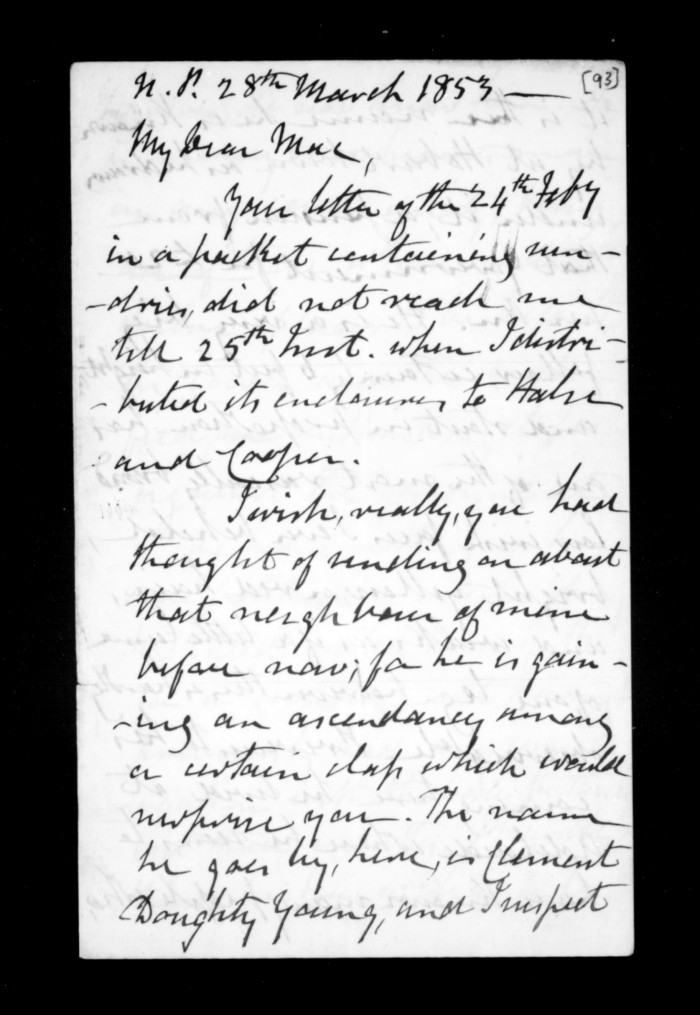 N. P. 28th March 1853 — [93]
My Dear Mac,
Your letter of the 24th Feby
in a packet containing sun-
-dries, did not reach me
till 25th Inst. when I distri-
-buted its enclosures to Halse
and Cooper.
I wish, really, you had
thought of sending on about
that neighbour of mine
before now; for he is gain-
-ing an ascendancy among
a certain class which would
surprise you. The name
he goes by, here, is Clement
Doughty Young, and I suspect